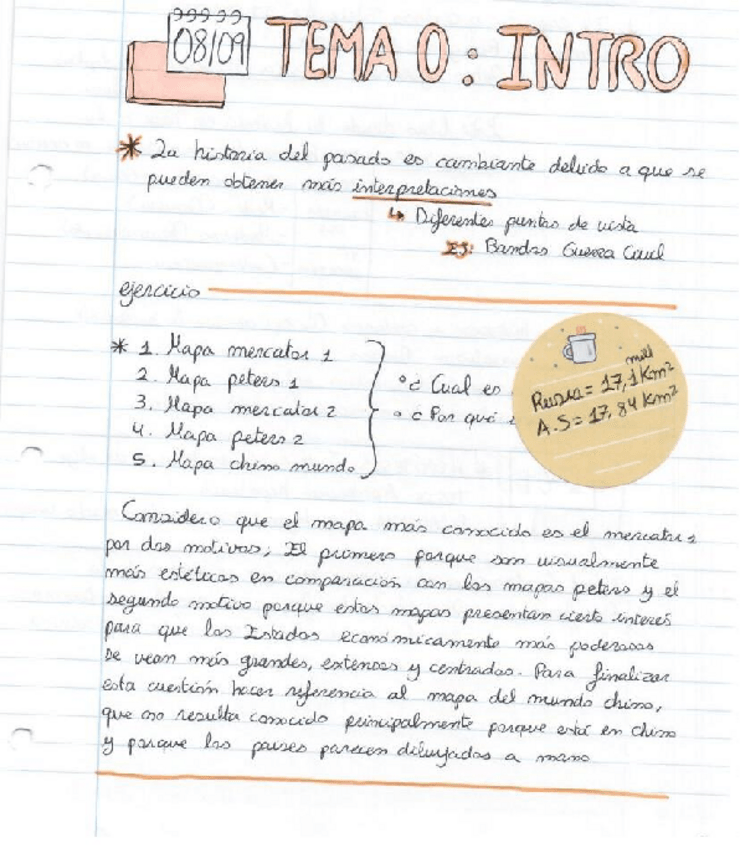 08/09
TEMA 0: INTRO
* La historia del pasado es cambiante debido a que se
pueden obtener más interpretaciones
↳ Diferentes puntos de vista
Ej: Bandos Guerra Civil
ejercicio
* 1. Mapa mercator 1
2. Mapa peters 1
3. Mapa mercator 2
4. Mapa peters 2
5. Mapa chino mundo
° ¿Cual es
° ¿Por qué
mill
Rusia = 17,1 Km²
A.S = 17,84 Km²
Considero que el mapa más conocido es el mercator 1
por dos motivos; El primero porque son visualmente
más estéticos en comparación con los mapas peters y el
segundo motivo porque estos mapas presentan cierto interés
para que los Estados económicamente más poderosos
se vean más grandes, extensos y centrados. Para finalizar
esta cuestión hacer referencia al mapa del mundo chino,
que no resulta conocido principalmente porque está en chino
y porque los países parecen dibujados a mano